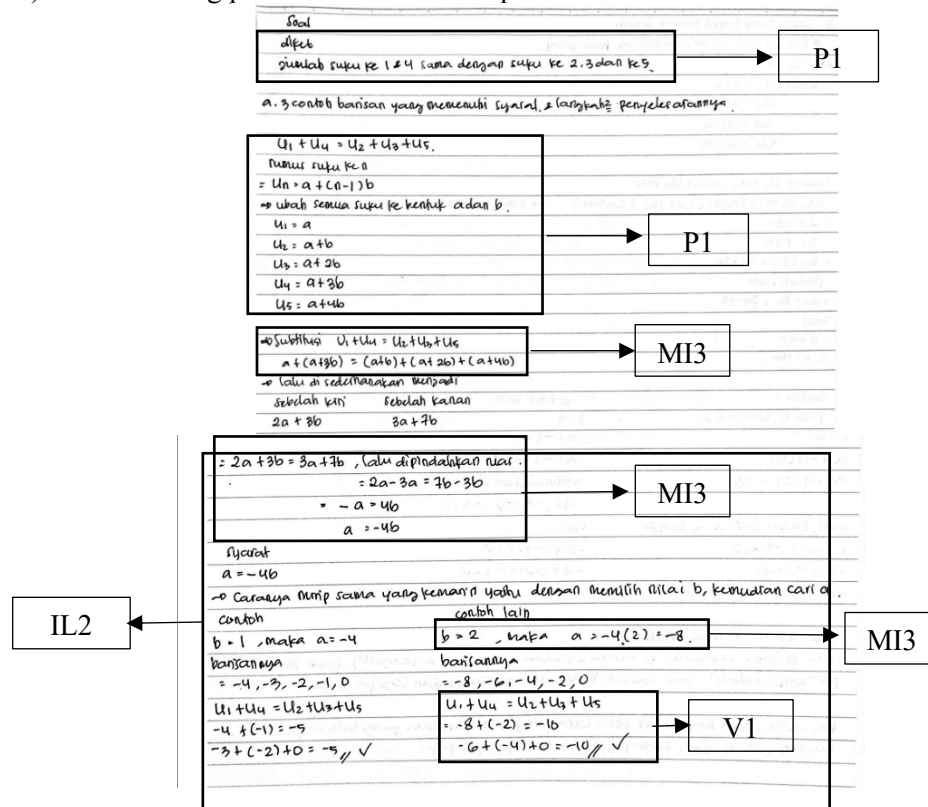 Soal
diket
jumlah suku ke 1 & 4 sama dengan suku ke 2,3 dan ke 5.
P1
a. 3 contoh barisan yang memenuhi syarat & langkah² penyelesaiannya.
U₁ + U₄ = U₂ + U₃ + U₅.
rumus suku ke n
= Un = a + (n-1) b
→ ubah semua suku ke bentuk a dan b.
U₁ = a
U₂ = a+b
U₃ = a+2b
U₄ = a+3b
U₅ = a+4b
P1
→ Subtitusi U₁+U₄ = U₂+U₃+U₅
a+(a+3b) = (a+b)+(a+2b)+(a+4b)
MI3
→ lalu di sederhanakan menjadi
sebelah kiri sebelah kanan
2a + 3b 3a + 7b
= 2a+3b = 3a+7b, lalu dipindahkan ruas.
= 2a-3a = 7b-3b
= -a = 4b
a = -4b
MI3
syarat
a = -4b
→ Caranya mirip sama yang kemarin yaitu dengan memilih nilai b, kemudian cari a.
IL2
contoh contoh lain
b = 1, maka a = -4 b = 2, maka a = -4(2) = -8.
MI3
barisannya barisannya
= -4, -3, -2, -1, 0 = -8, -6, -4, -2, 0
U₁+U₄ = U₂+U₃+U₅ U₁+U₄ = U₂+U₃+U₅
-4 + (-1) = -5 = -8 + (-2) = -10
-3 + (-2) + 0 = -5 // ✓ -6 + (-4) + 0 = -10 // ✓
V1